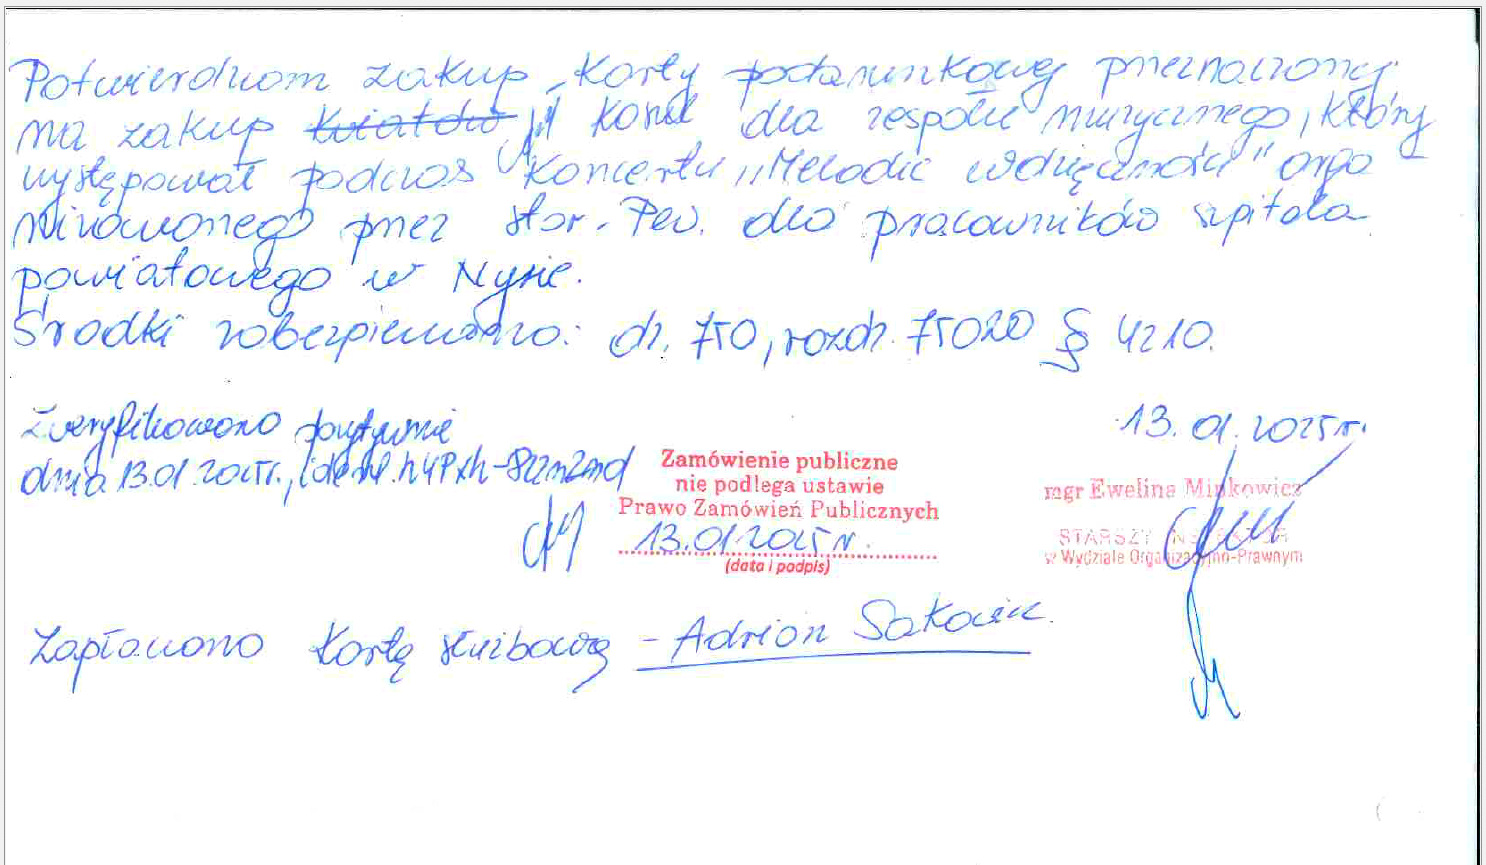 Potwierdzam zakup karty podarunkowej przeznaczonej
na zakup kwiatów dla zespołu muzycznego, który
występował podczas koncertu „Melodie wdzięczności" orga
nizowanego przez star. Pow. dla pracowników szpitala
powiatowego w Nysie.
Środki zabezpieczono: dz. 750, rozdz. 75020 § 4210.
Zweryfikowano pozytywnie
13.01.2025 r.
dnia 13.01.2025 r.,
Zamówienie publiczne
nie podlega ustawie
Prawo Zamówień Publicznych
13.01.2025 r.
(data i podpis)
mgr Ewelina Minkowicz
STARSZY INSPEKTOR
w Wydziale Organizacyjno-Prawnym
Zapłacono kartą służbową - Adrian